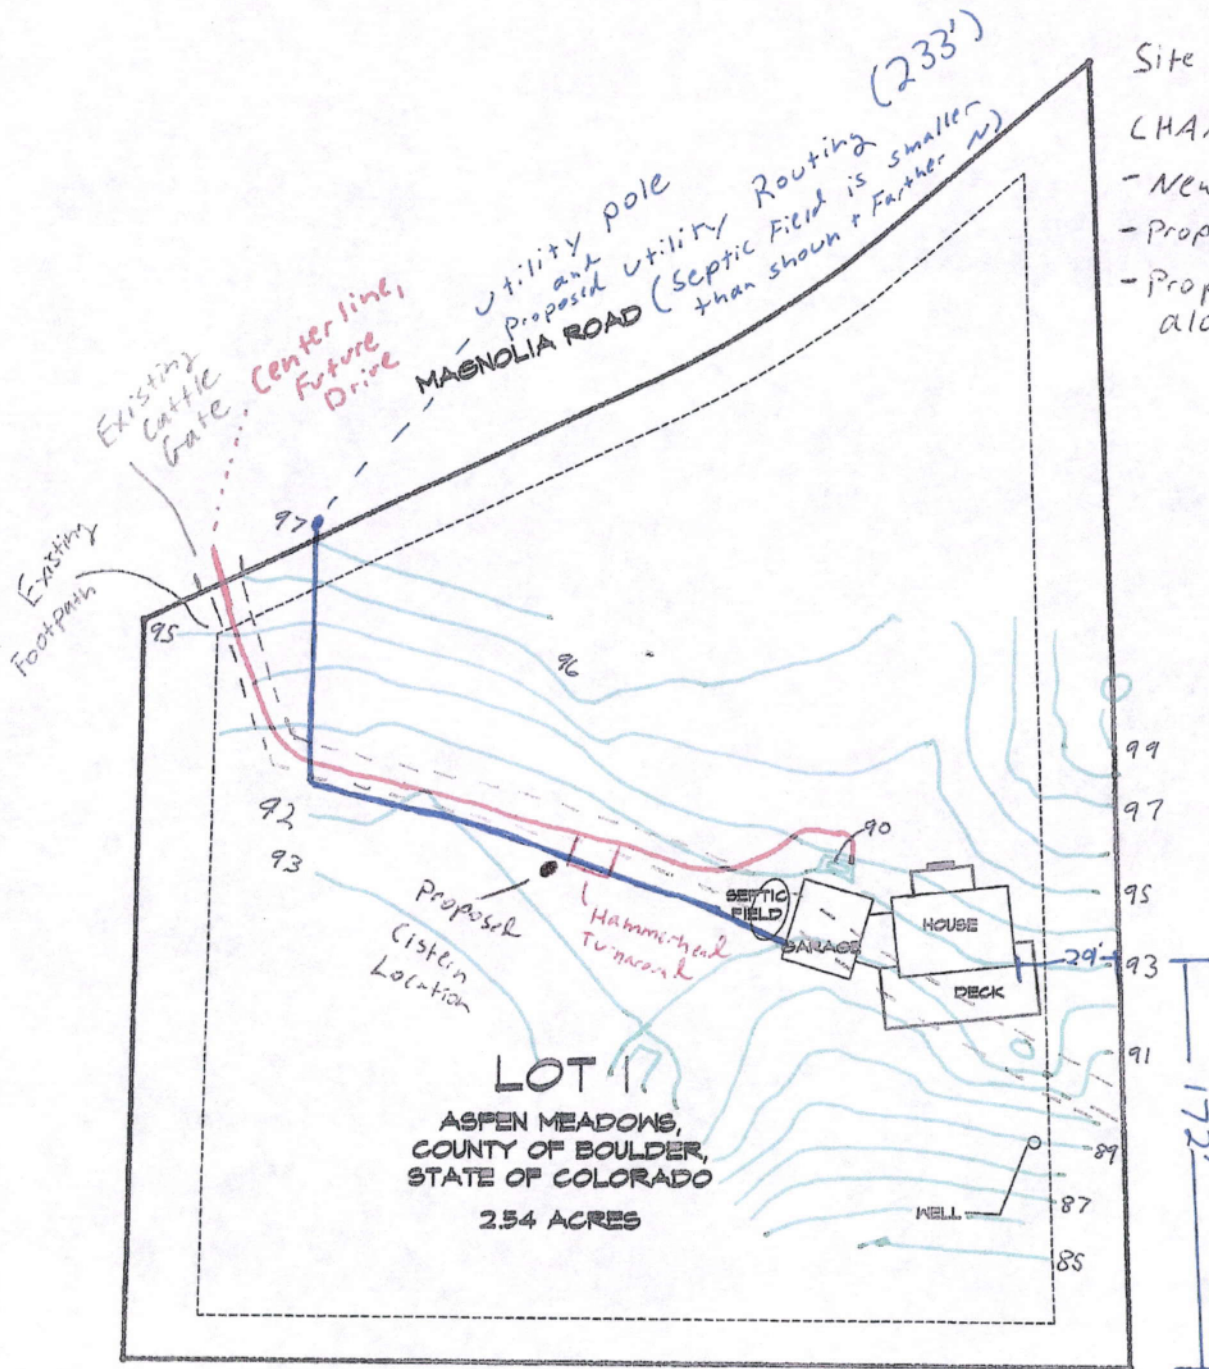 Site
CHA
- New
- Prop
- Prop
alo
(233')
Utility pole
and
proposed utility Routing
(Septic Field is smaller
than shown + Farther N)
MAGNOLIA ROAD
Centerline,
Future
Drive
Existing
Cattle
Gate
Existing
Footpath
97
95
96
99
97
92
90
95
93
SEPTIC
FIELD
HOUSE
Proposed
Cistern
Location
Hammerhead
Turnaround
GARAGE
29'
93
DECK
91
172'
LOT 1
ASPEN MEADOWS,
COUNTY OF BOULDER,
STATE OF COLORADO
2.54 ACRES
89
87
WELL
85